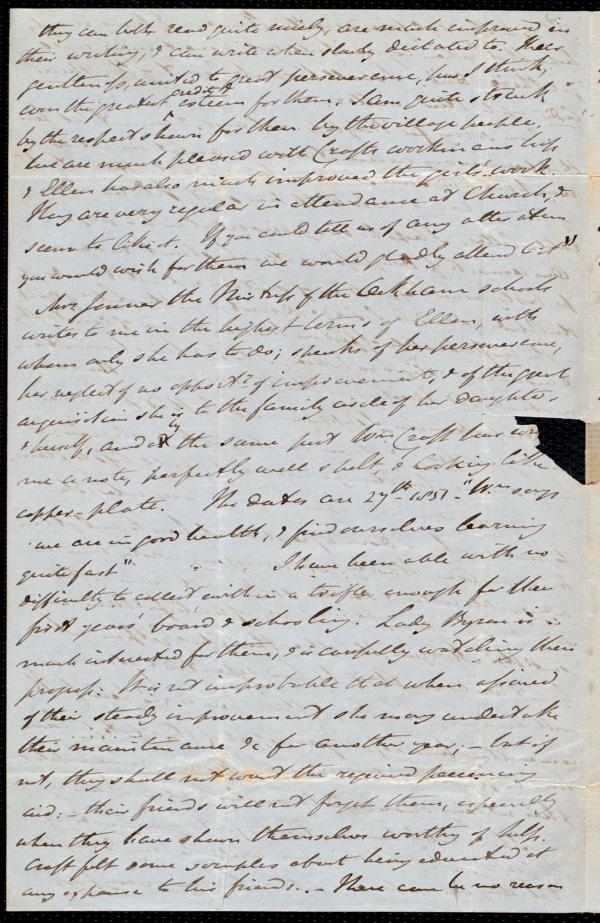 they can both read quite nicely, are much improved in
their writing, & can write when slowly dictated to. Their
gentleness, united to great perseverance, has I think,
won the greatest credit & esteem for them. I am quite struck
by the respect shewn for them by the village people.
We are much pleased with Crafts working
& Ellen has also much improved the girls' work.
They are very regular in attendance at Church, &
seem to like it. If you could tell us of any alterations
you would wish for them we would gladly attend to it"
Mrs Jenner the Mistress of the Ockham schools
writes to me in the highest terms of Ellen, with
whom only she has to do; speaks of her perseverance,
her neglect of no opporty of improvement, & of the great
acquisition she is to the family circle of her daughter
& herself, and by the same post Wm Craft has
me a note, perfectly well spelt, & looking like
copper-plate. The dates are 27th 1851 - "Wm says
'we are in good health, & find ourselves learning
quite fast". I have been able with no
difficulty to collect within a trifle enough for their
first years' board & schooling. Lady Byron is
much interested for them, & is carefully watching their
progress: It is not improbable that when assured
of their steady improvement she may undertake
their maintenance &c for another year; - but if
not, they shall not want the required pecuniary
aid: - their friends will not forget them, especially
when they have shewn themselves worthy of help.
Craft felt some scruples about being educated at
any expense to his friends. - There can be no reason